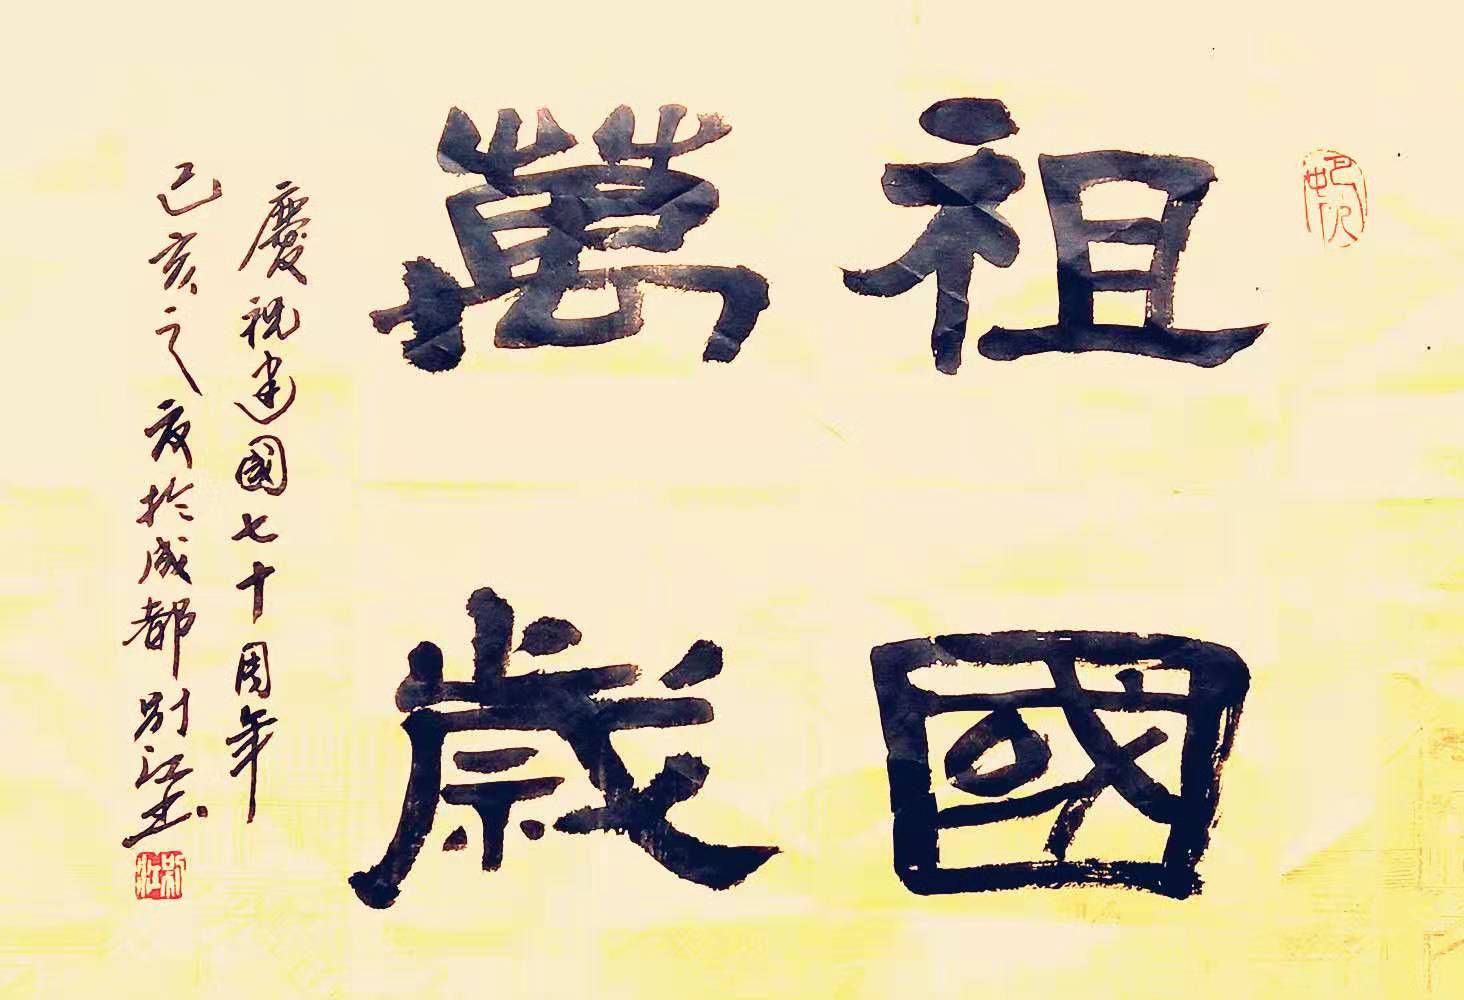 祖國
萬歳
慶祝建國七十周年
己亥之夏於成都別江